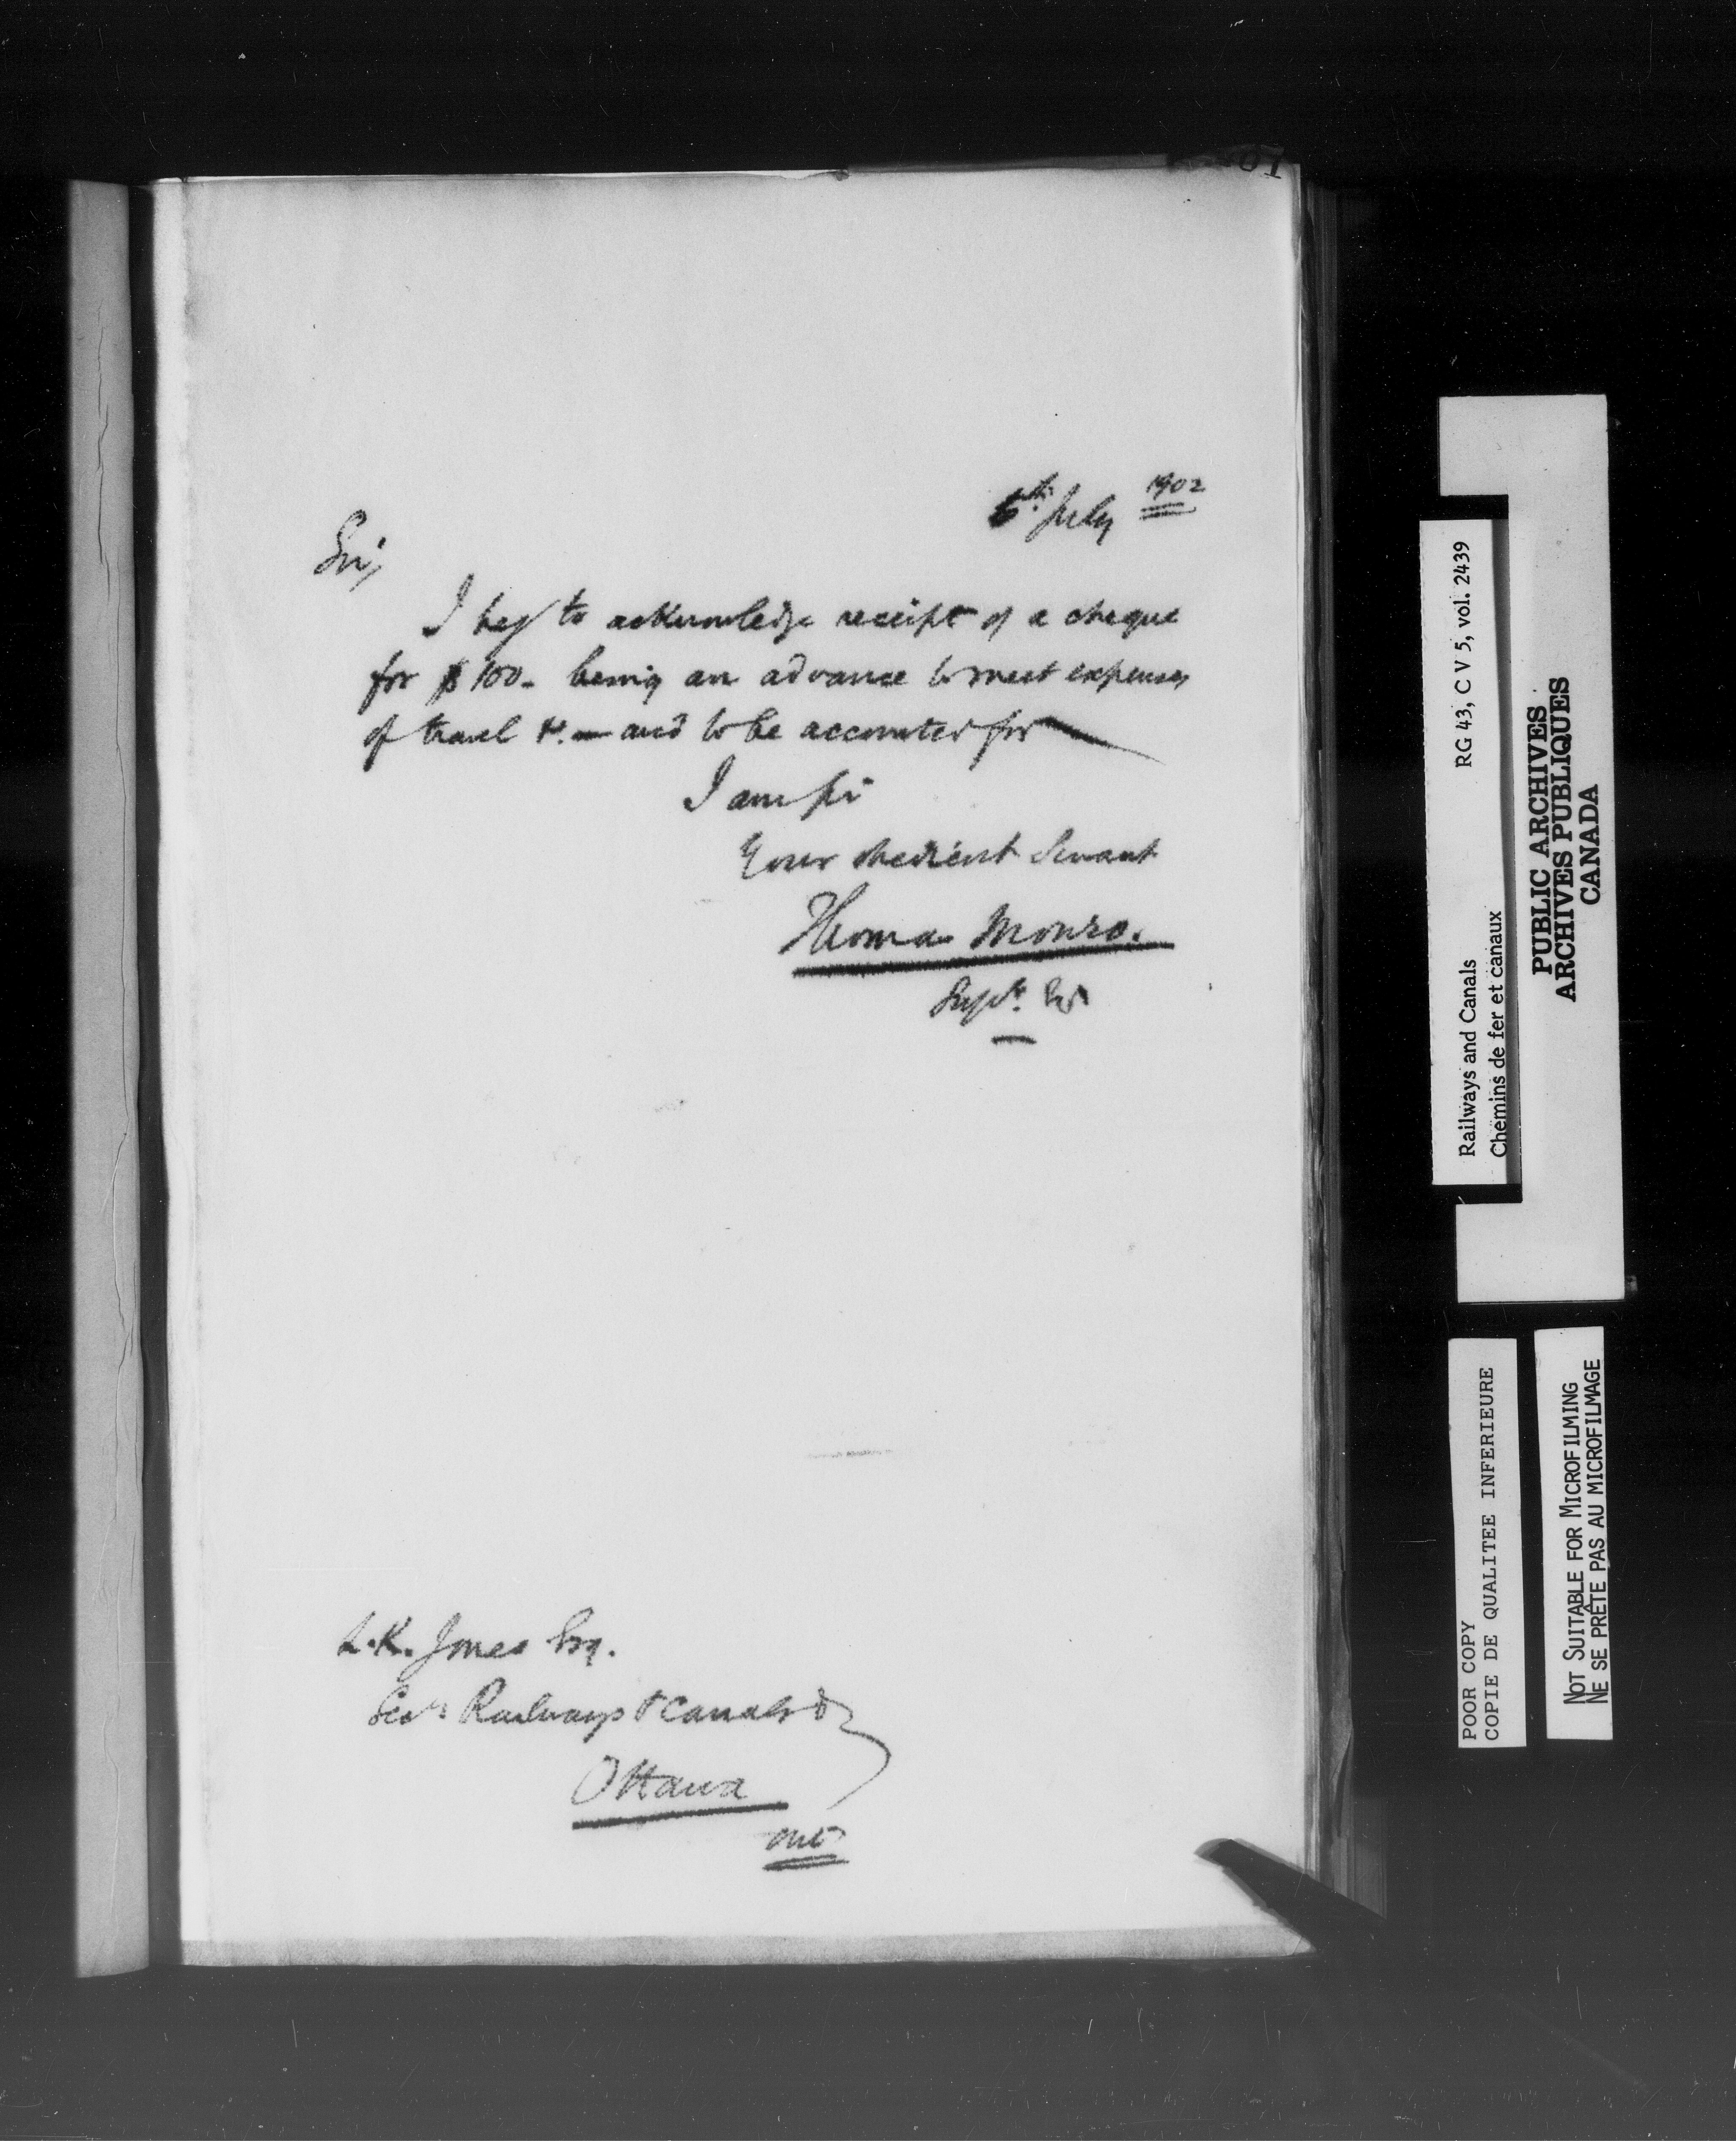 01
6th July 1902
Sir,
I beg to acknowledge receipt of a cheque
for $100- being an advance to meet expenses
of travel &c. — and to be accounted for
I am Sir
Your obedient Servant
Thomas Monro.
Supt. Eng
L.K. Jones Esq.
Secy Railways & Canals
Ottawa
Ont
Railways and Canals RG 43, C V 5, vol. 2439
Chemins de fer et canaux
PUBLIC ARCHIVES
ARCHIVES PUBLIQUES
CANADA
POOR COPY
COPIE DE QUALITEE INFERIEURE
NOT SUITABLE FOR MICROFILMING
NE SE PRÊTE PAS AU MICROFILMAGE